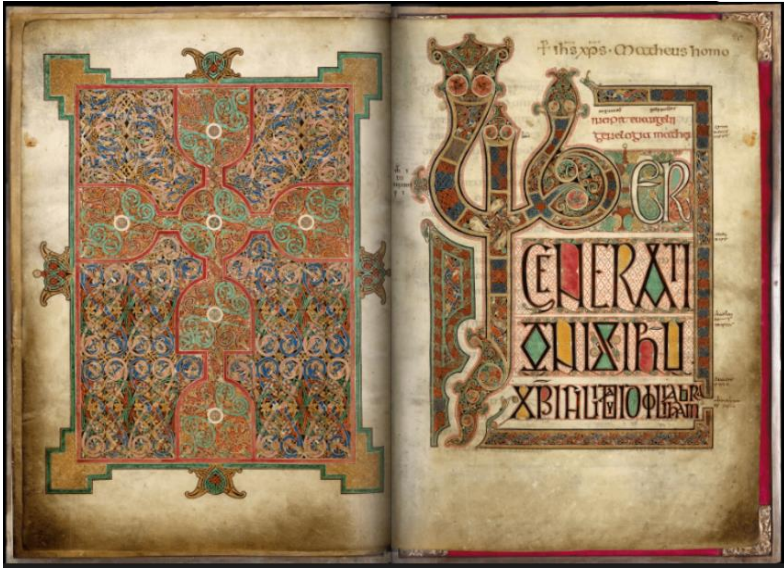 † ihs xps · Mattheus homo
incipit euangelii
genelogia mathei
LIBER
GENERATI
ONIS IHU
XPI FILII DAVID FILII ABRAHAM